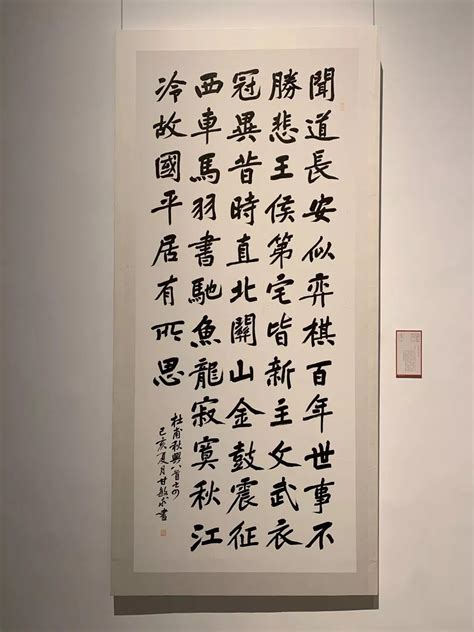 聞道長安似弈棋百年世事不
勝悲王侯第宅皆新主文武衣
冠異昔時直北關山金鼓震征
西車馬羽書馳魚龍寂寞秋江
冷故國平居有所思
杜甫秋興八首之四
己亥夏月甘敬書